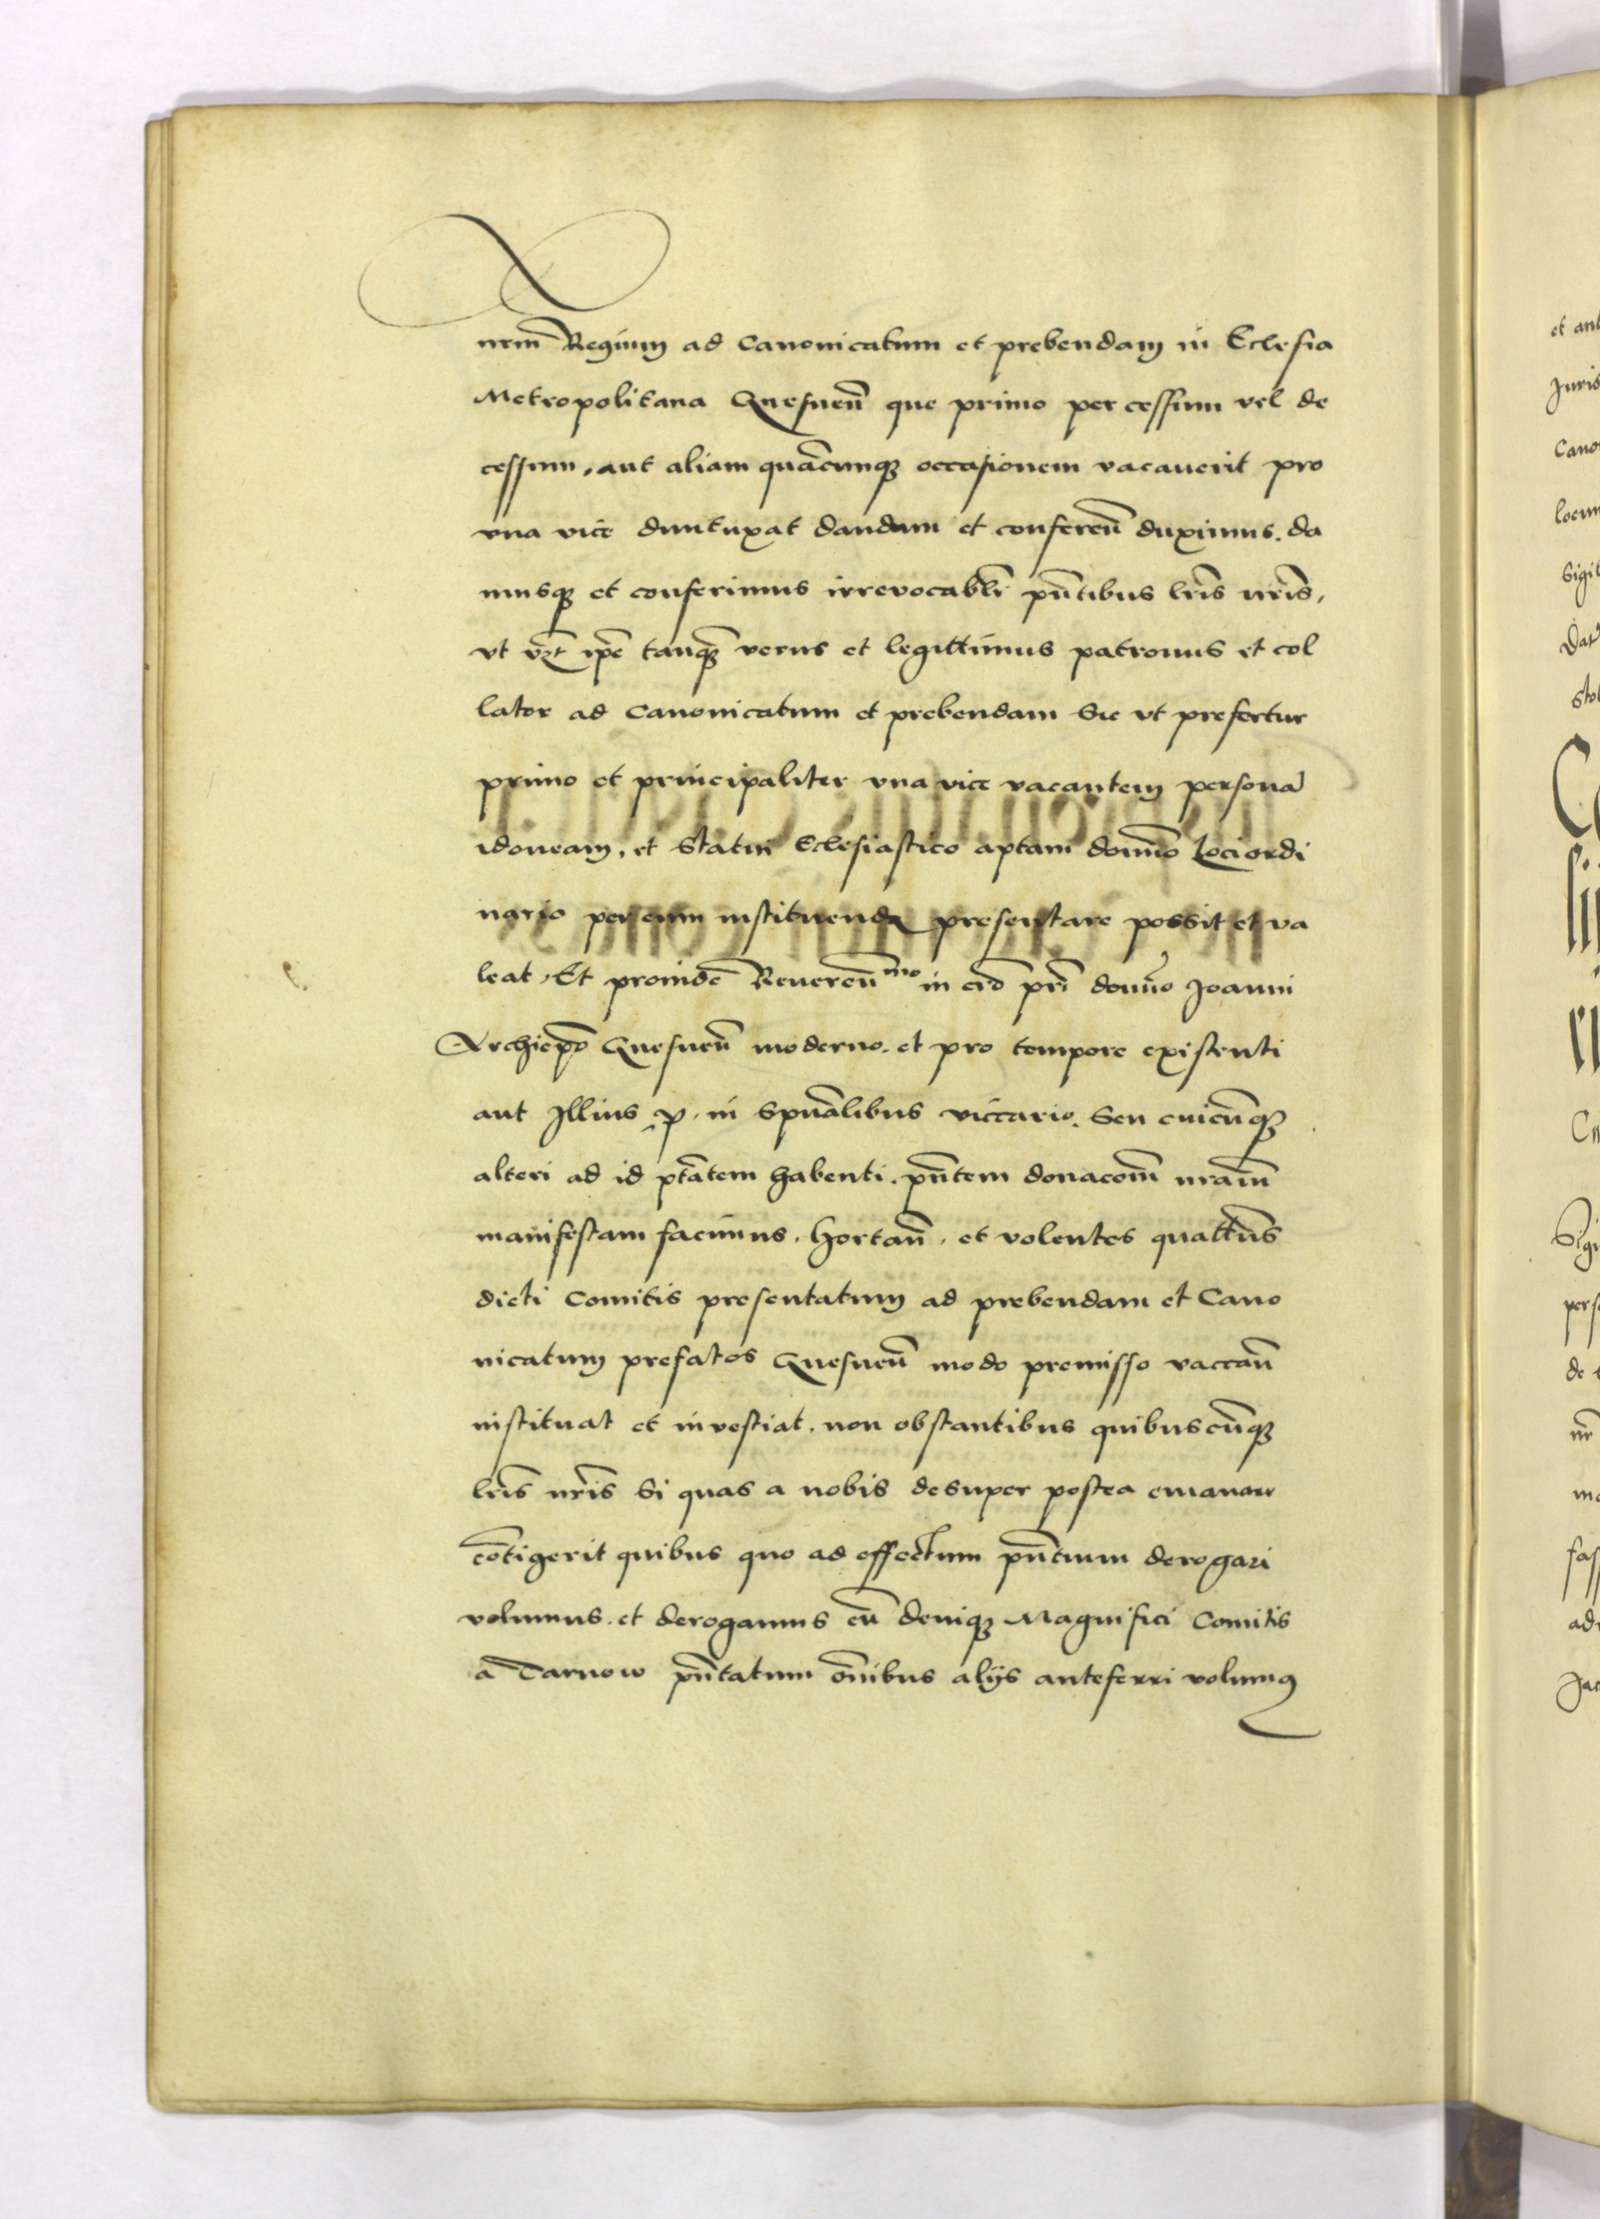 nrm̃ Regium ad Canonicatum et prebendam in Eclesia
Metropolitana Gnesneñ que primo per cessum vel de
cessum, aut aliam quãcunqꝫ occasionem vacauerit pro
vna vice duntaxat dandam et confereñ duximus. da
musqꝫ et conferimus irrevocabl̃r pñtibus lr̃is nr̃is,
vt vꝫt ip̃e tanqꝫ verus et legittimus patronus et col
lator ad Canonicatum et prebendam Sic vt prefertur
primo et principaliter vna vice vacantem personã
idoneam, et Statui Eclesiastico aptam domño Loci ordi
nario per eum instituendã presentare possit et va
leat, Et proindẽ Reuereñmo in crõ pr̃i domño Joanni
Archiep̃o Gnesneñ moderno, et pro tempore existenti
aut Illius, p, in Spũalibus viccario, Seu cuicũqꝫ
alteri ad id ptãtem habenti, pñtem donacom̃ nram̃
manifestam facimus, Hortañ, et volentes quatt̃us
dicti Comitis presentatum ad prebendam et Cano
nicatum prefatos Gnesneñ modo premisso vaccañ
instituat et investiat, non obstantibus quibuscũqꝫ
lr̃is nr̃is Si quas a nobis desuper postea emanare
cõtigerit quibus quo ad effectum pñtium derogari
volumus, et derogamus cũ deniqꝫ Magnifici Comitis
a Tarnow pñtatum om̃ibus alijs anteferri volumꝰ